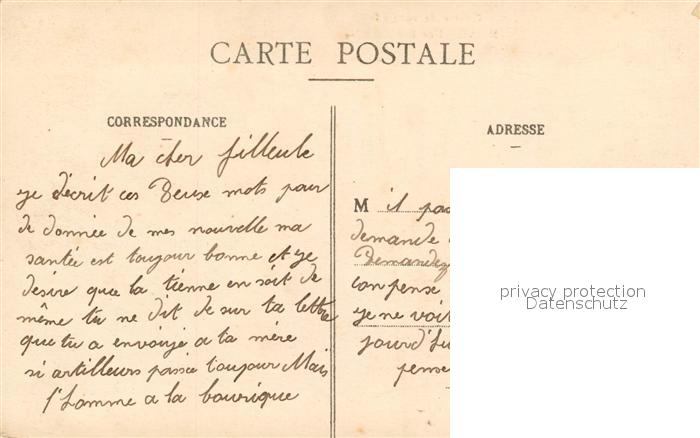 CARTE POSTALE
CORRESPONDANCE
Ma cher filleule
je décrit ces Deuse mots pour
de donnée de mes nouvelle ma
santée est toujour bonne et je
desire que la tienne en soit de
même tu ne dit de sur ta lettre
que tu a envoyé a ta mére
si artilleurs passée toujour Mais
l'homme a la bourique
ADRESSE
M il pas
demande
Demandez
conpense
je ne voit
jourd'hu
pense
privacy protection
Datenschutz